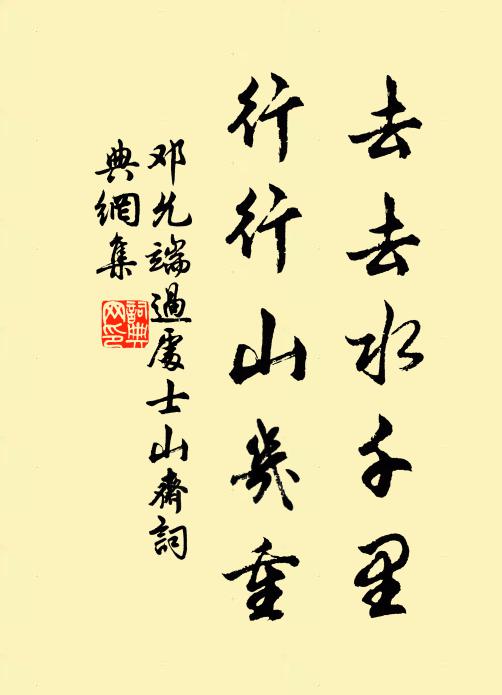 去去水千里
行行山幾重
邓允端過處士山齋詞
典網集
詞典網印